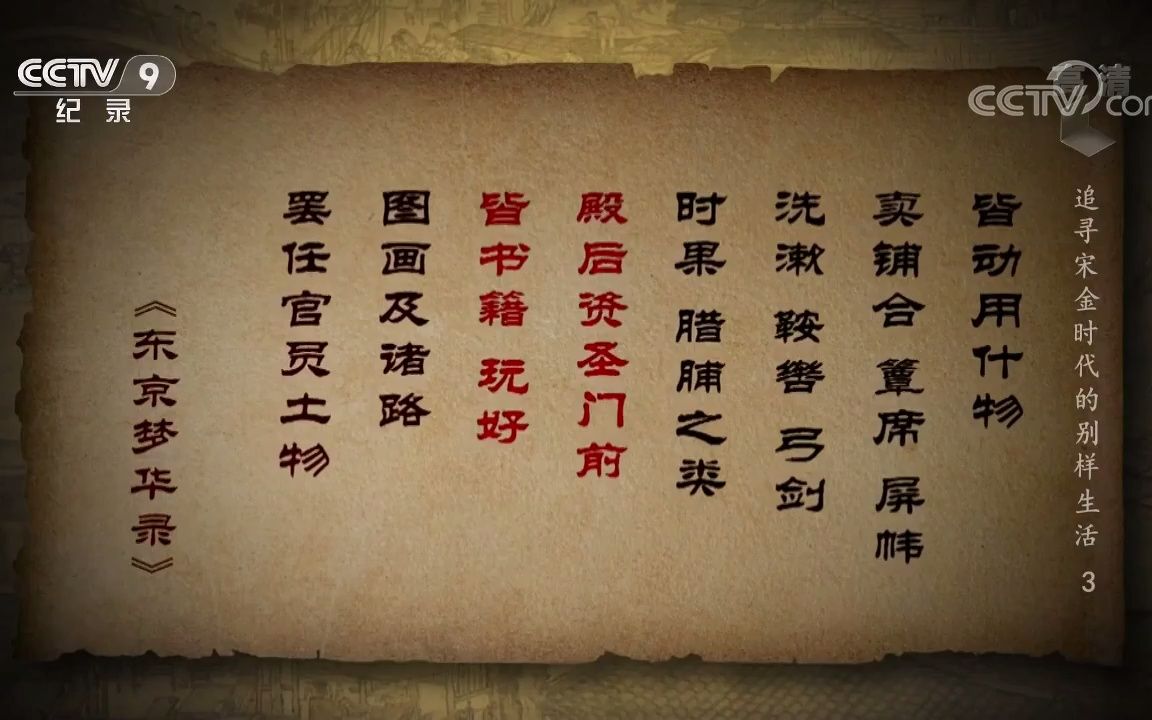 CCTV 9
纪录
高清
CCTV.com
追寻宋金时代的别样生活 3
皆动用什物
卖铺合 簟席 屏帏
洗漱 鞍辔 弓剑
时果 腊脯之类
殿后资圣门前
皆书籍 玩好
图画及诸路
罢任官员土物
《东京梦华录》